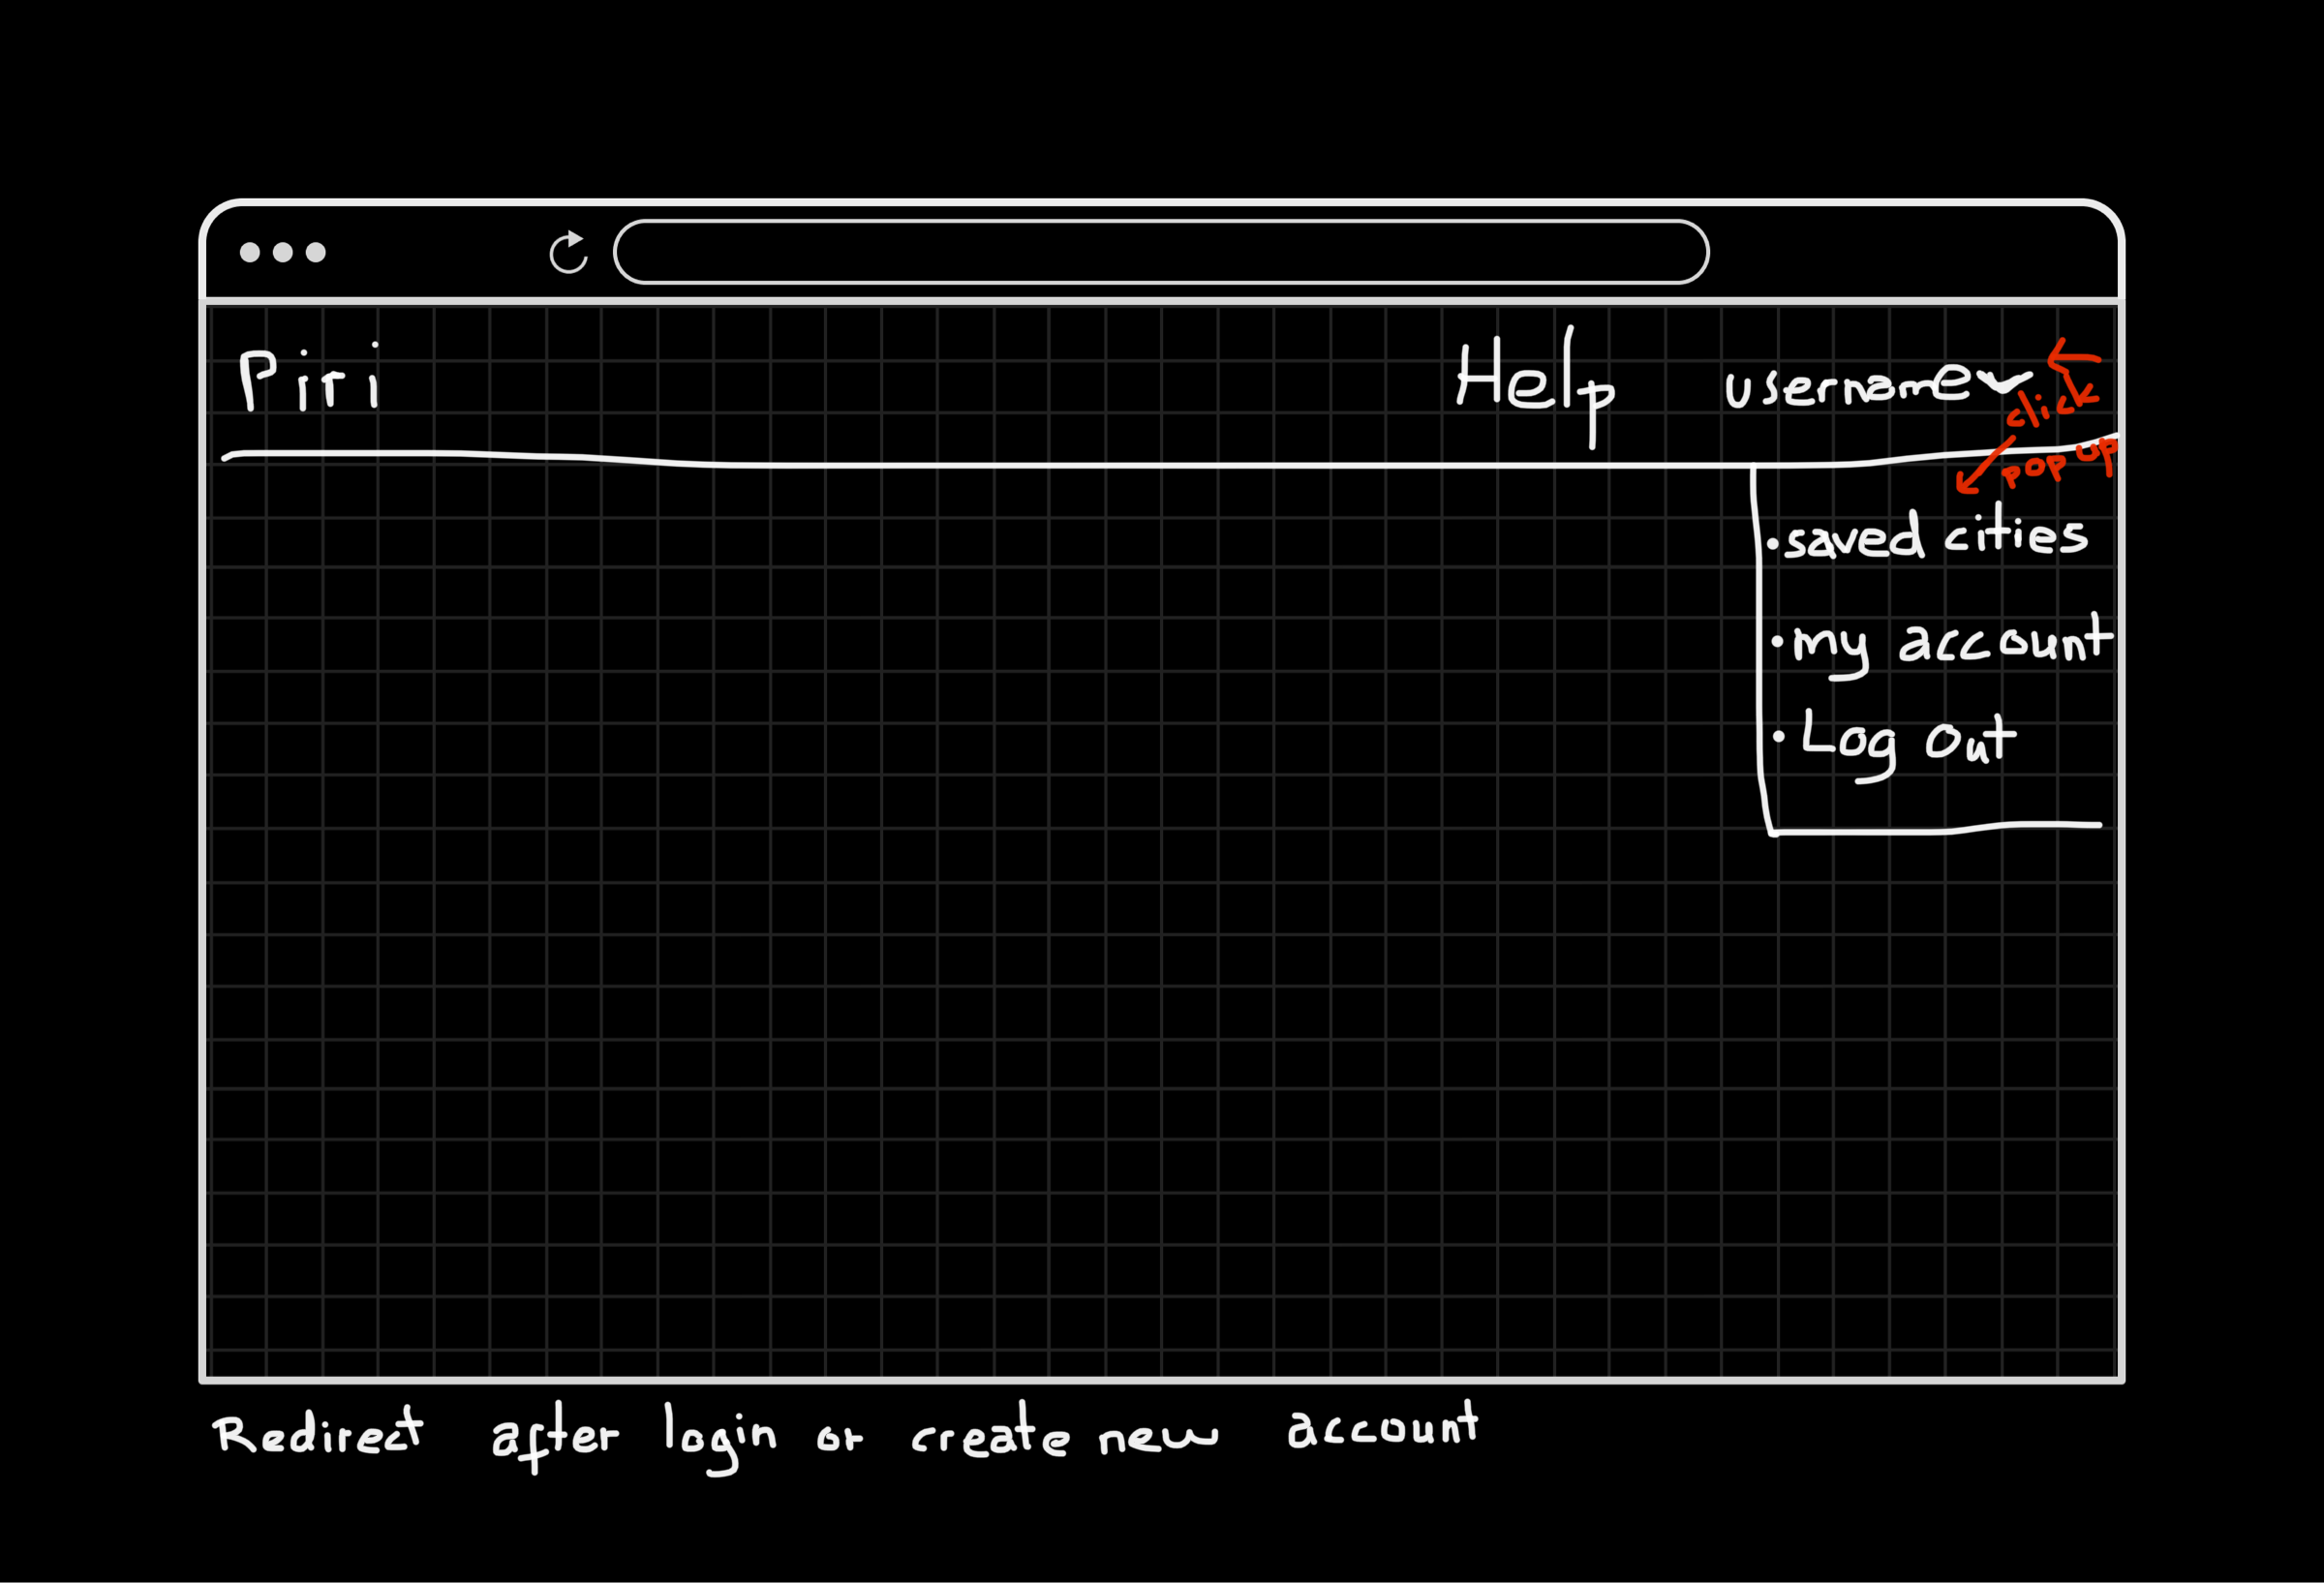 Piri Help username
click
pop up
• saved cities
• my account
• Log Out
Redirect after login or create new account